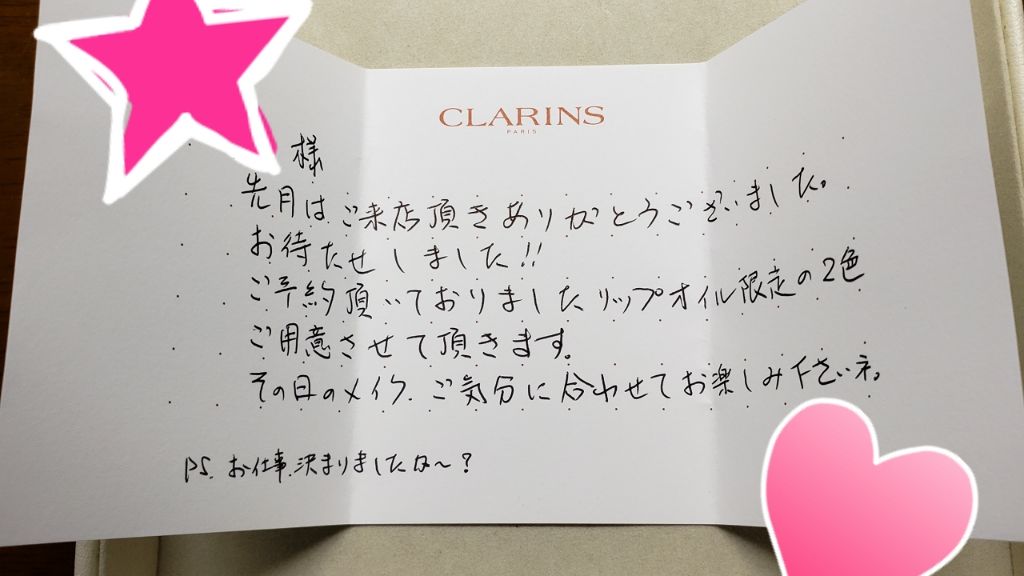 CLARINS
PARIS
様
先月はご来店頂きありがとうございました。
お待たせしました!!
ご予約頂いておりましたリップオイル限定の2色
ご用意させて頂きます。
その日のメイク、ご気分に合わせてお楽しみ下さいネ。
PS. お仕事、決まりましたかな〜?